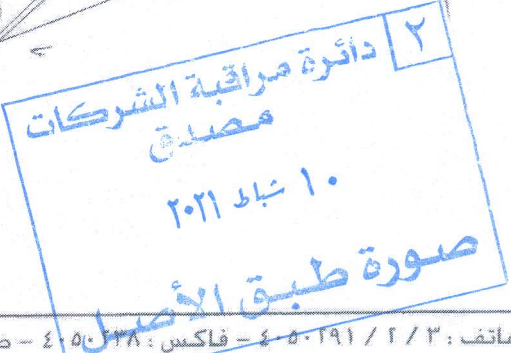 ٢
دائرة مراقبة الشركات
مصدق
١٠ شباط ٢٠٢١
صورة طبق الأصل
هاتف : ٣ / ٢ / ٤٠٥٠٢٩١ – فاكس : ٤٠٥٠٢٣٨ –